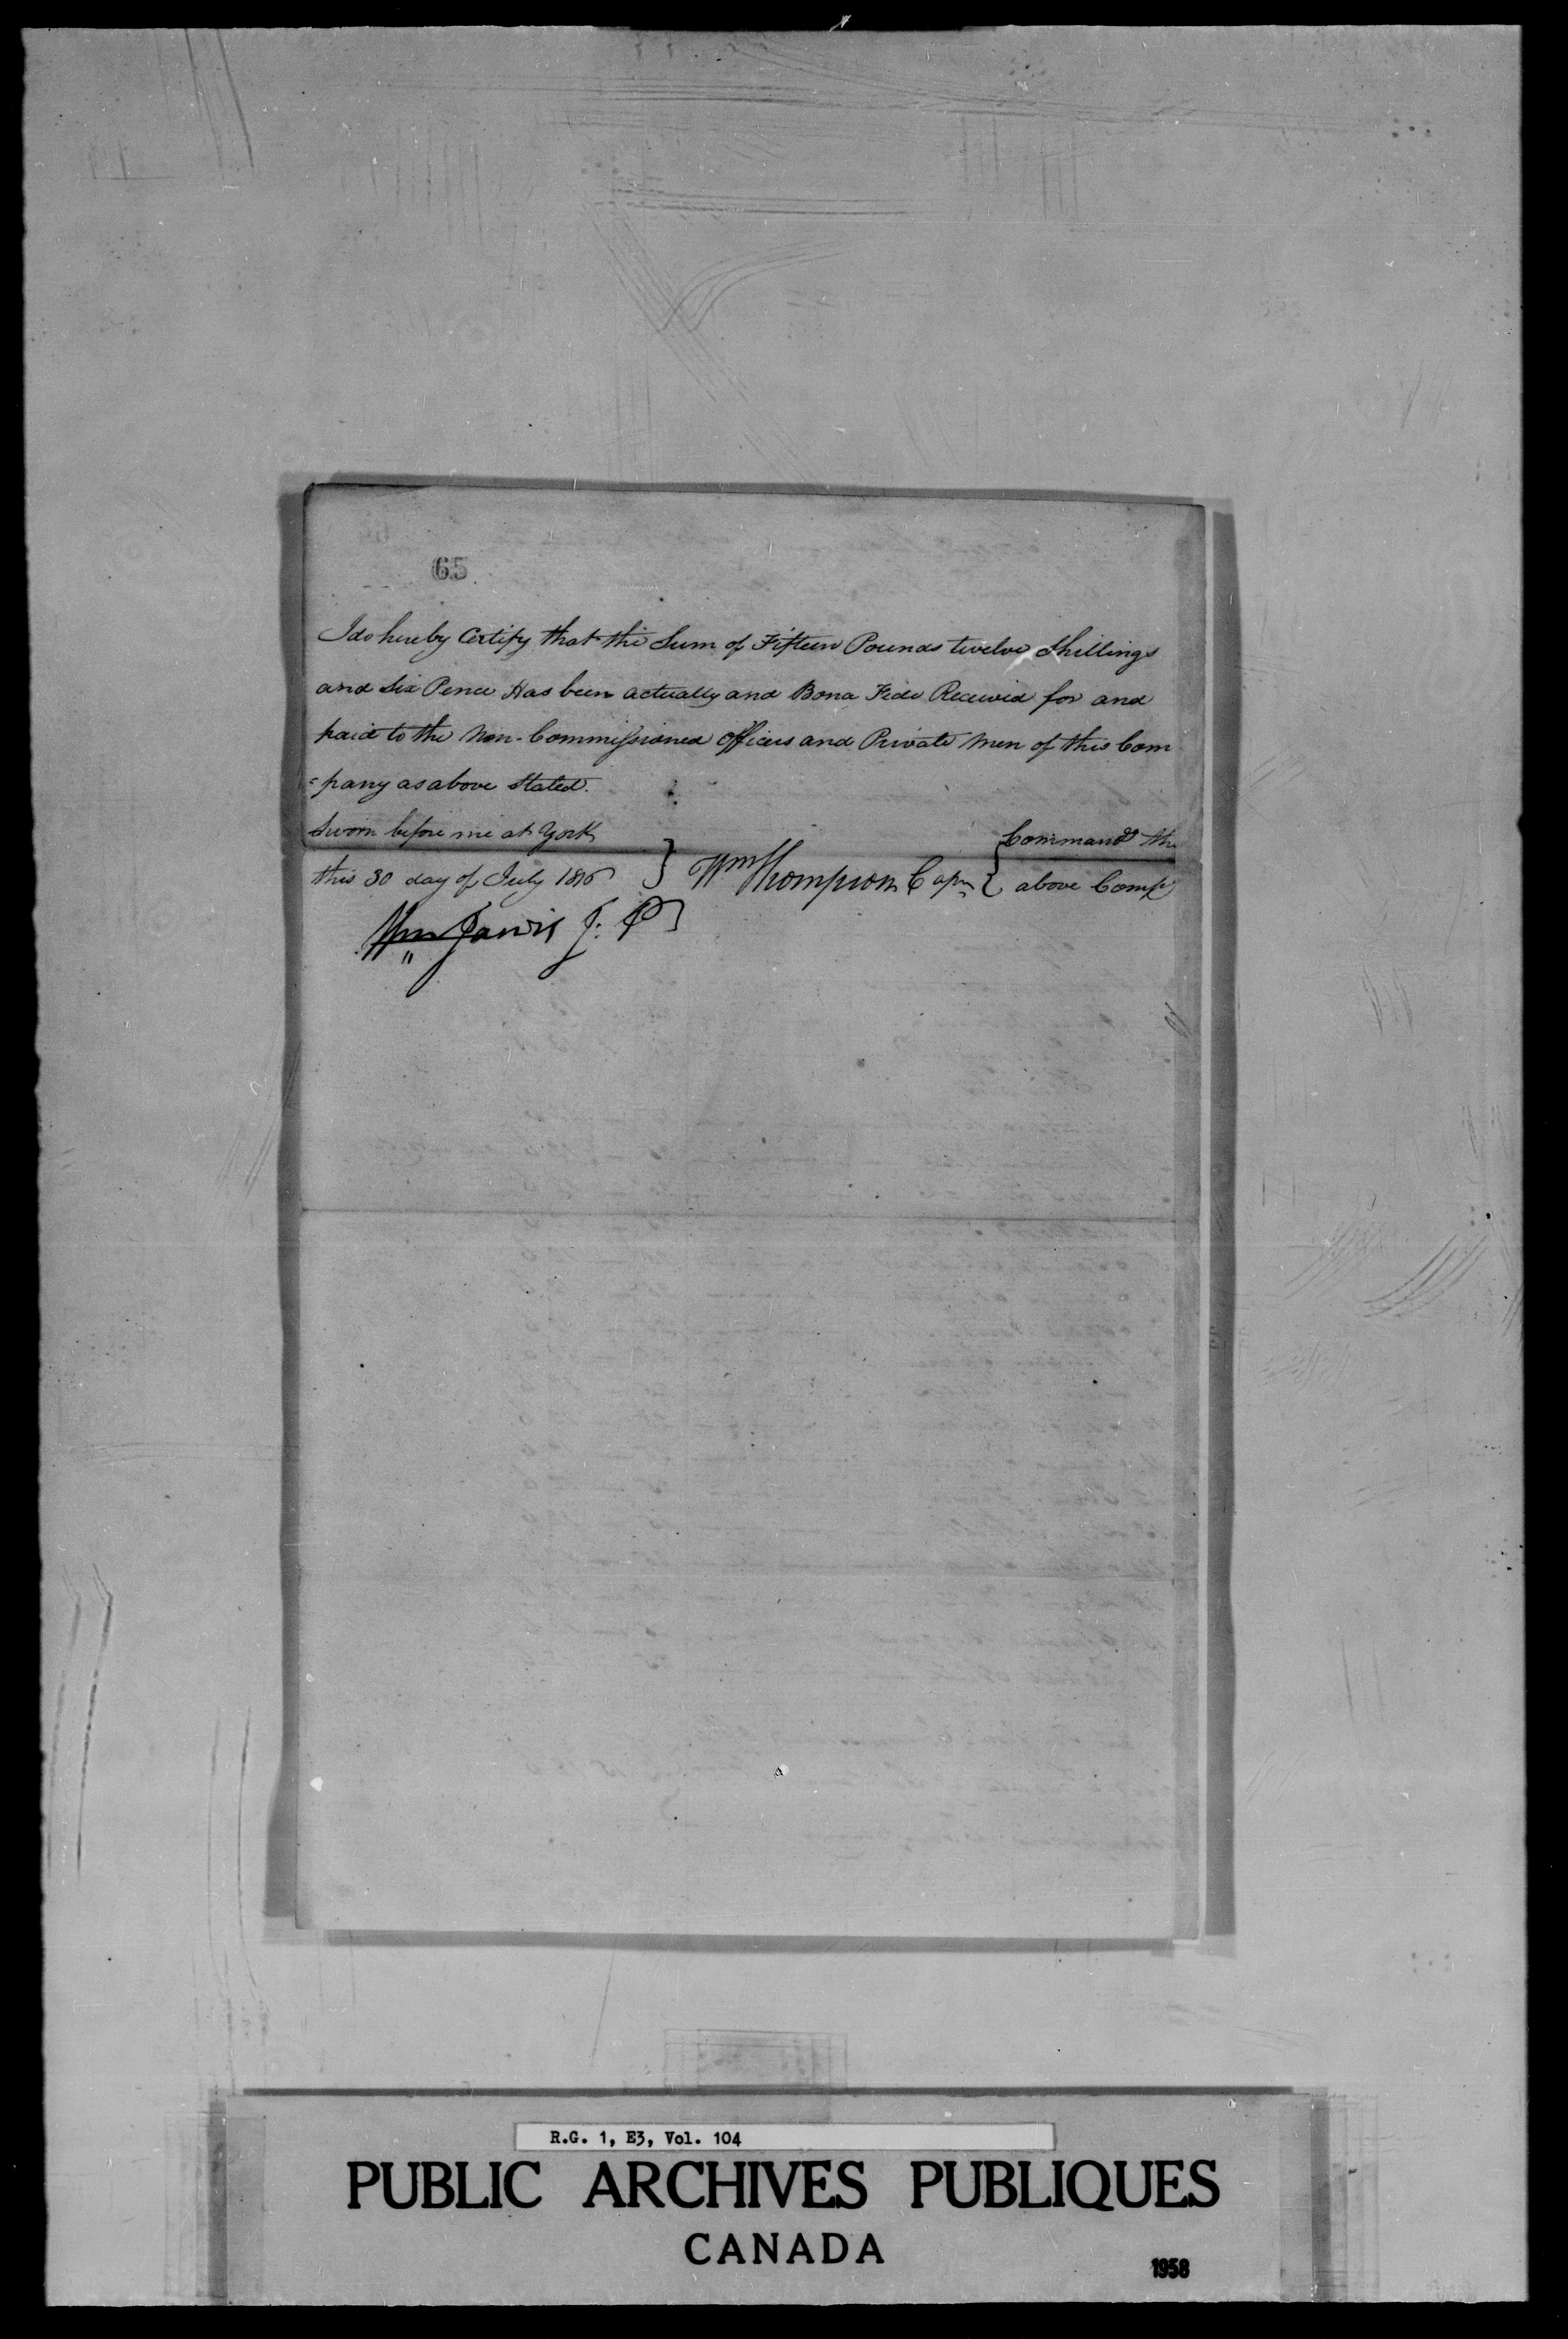 65
I do hereby Certify that the Sum of Fifteen Pounds twelve Shillings
and Six Pence Has been actually and Bona Fide Received for and
paid to the Non-Commissioned Officers and Private Men of this Com
=pany as above Stated.
Sworn before me at York
this 30 day of July 1816 } Wm Thompson Capn { Command the
above Comp
Wm Jarvis J: P
R.G. 1, E3, Vol. 104
PUBLIC ARCHIVES PUBLIQUES
CANADA
1958